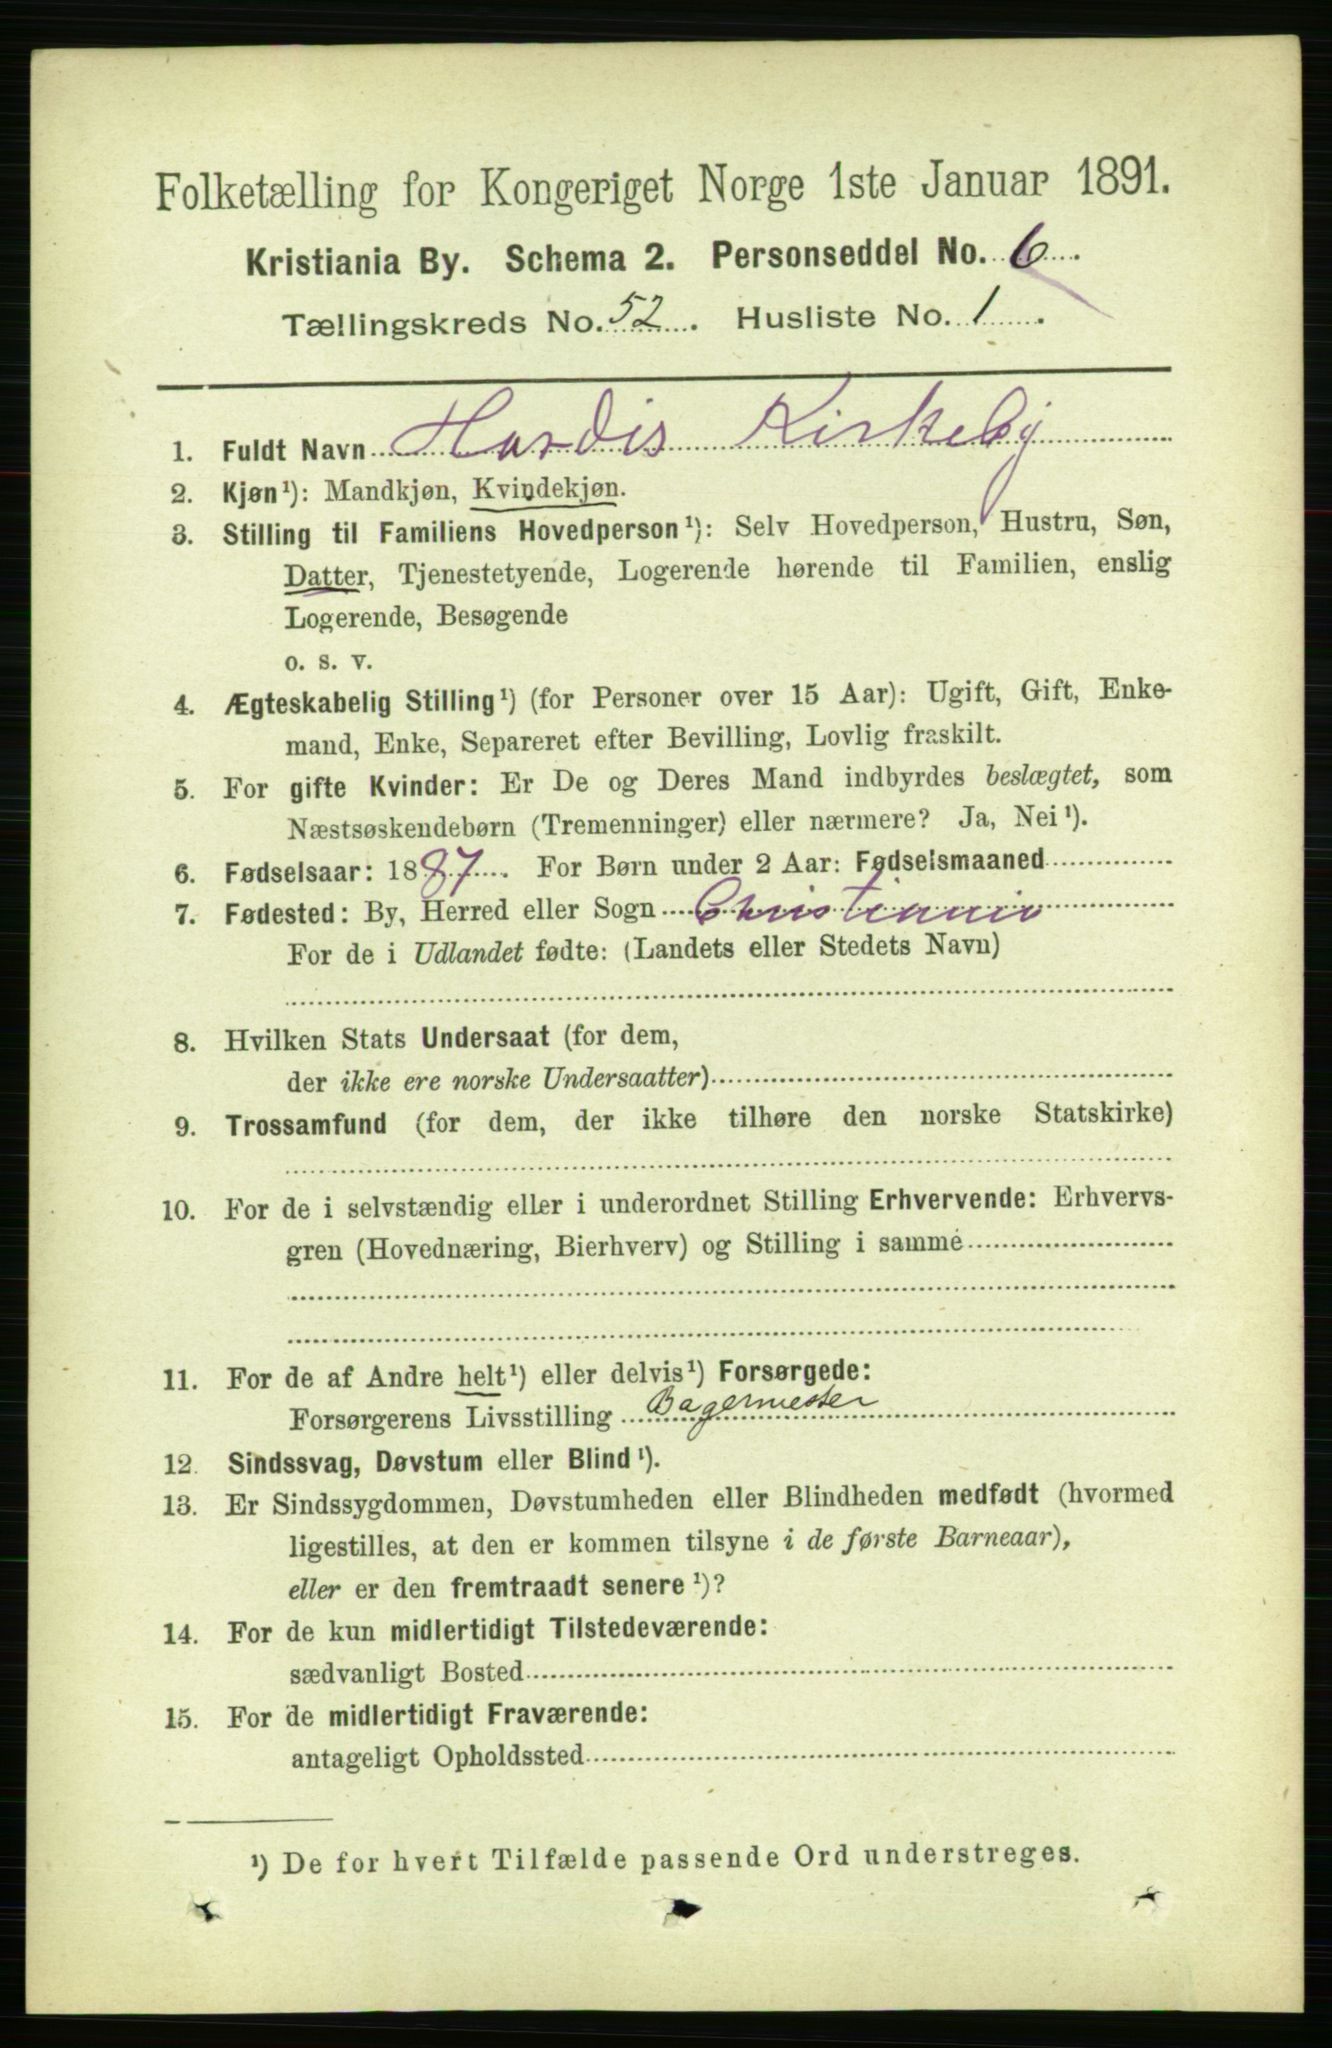 Folketælling for Kongeriget Norge 1ste Januar 1891.
Kristiania By. Schema 2. Personseddel No. 6.
Tællingskreds No. 52. Husliste No. 1.
1. Fuldt Navn Hardis Kirkeby
2. Kjøn¹): Mandkjøn, Kvindekjøn.
3. Stilling til Familiens Hovedperson¹): Selv Hovedperson, Hustru, Søn,
Datter, Tjenestetyende, Logerende hørende til Familien, enslig
Logerende, Besøgende
o. s. v.
4. Ægteskabelig Stilling¹) (for Personer over 15 Aar): Ugift, Gift, Enke-
mand, Enke, Separeret efter Bevilling, Lovlig fraskilt.
5. For gifte Kvinder: Er De og Deres Mand indbyrdes beslægtet, som
Næstsøskendebørn (Tremenninger) eller nærmere? Ja, Nei¹).
6. Fødselsaar: 1887. For Børn under 2 Aar: Fødselsmaaned
7. Fødested: By, Herred eller Sogn Christiania
For de i Udlandet fødte: (Landets eller Stedets Navn)
8. Hvilken Stats Undersaat (for dem,
der ikke ere norske Undersaatter)
9. Trossamfund (for dem, der ikke tilhøre den norske Statskirke)
10. For de i selvstændig eller i underordnet Stilling Erhvervende: Erhvervs-
gren (Hovednæring, Bierhverv) og Stilling i samme
11. For de af Andre helt¹) eller delvis¹) Forsørgede:
Forsørgerens Livsstilling Bagermester
12. Sindssvag, Døvstum eller Blind¹).
13. Er Sindssygdommen, Døvstumheden eller Blindheden medfødt (hvormed
ligestilles, at den er kommen tilsyne i de første Barneaar),
eller er den fremtraadt senere¹)?
14. For de kun midlertidigt Tilstedeværende:
sædvanligt Bosted
15. For de midlertidigt Fraværende:
antageligt Opholdssted
¹) De for hvert Tilfælde passende Ord understreges.